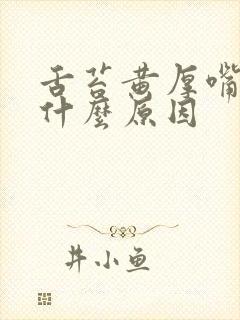 舌苔黄厚嘴
什麼原因
井小鱼